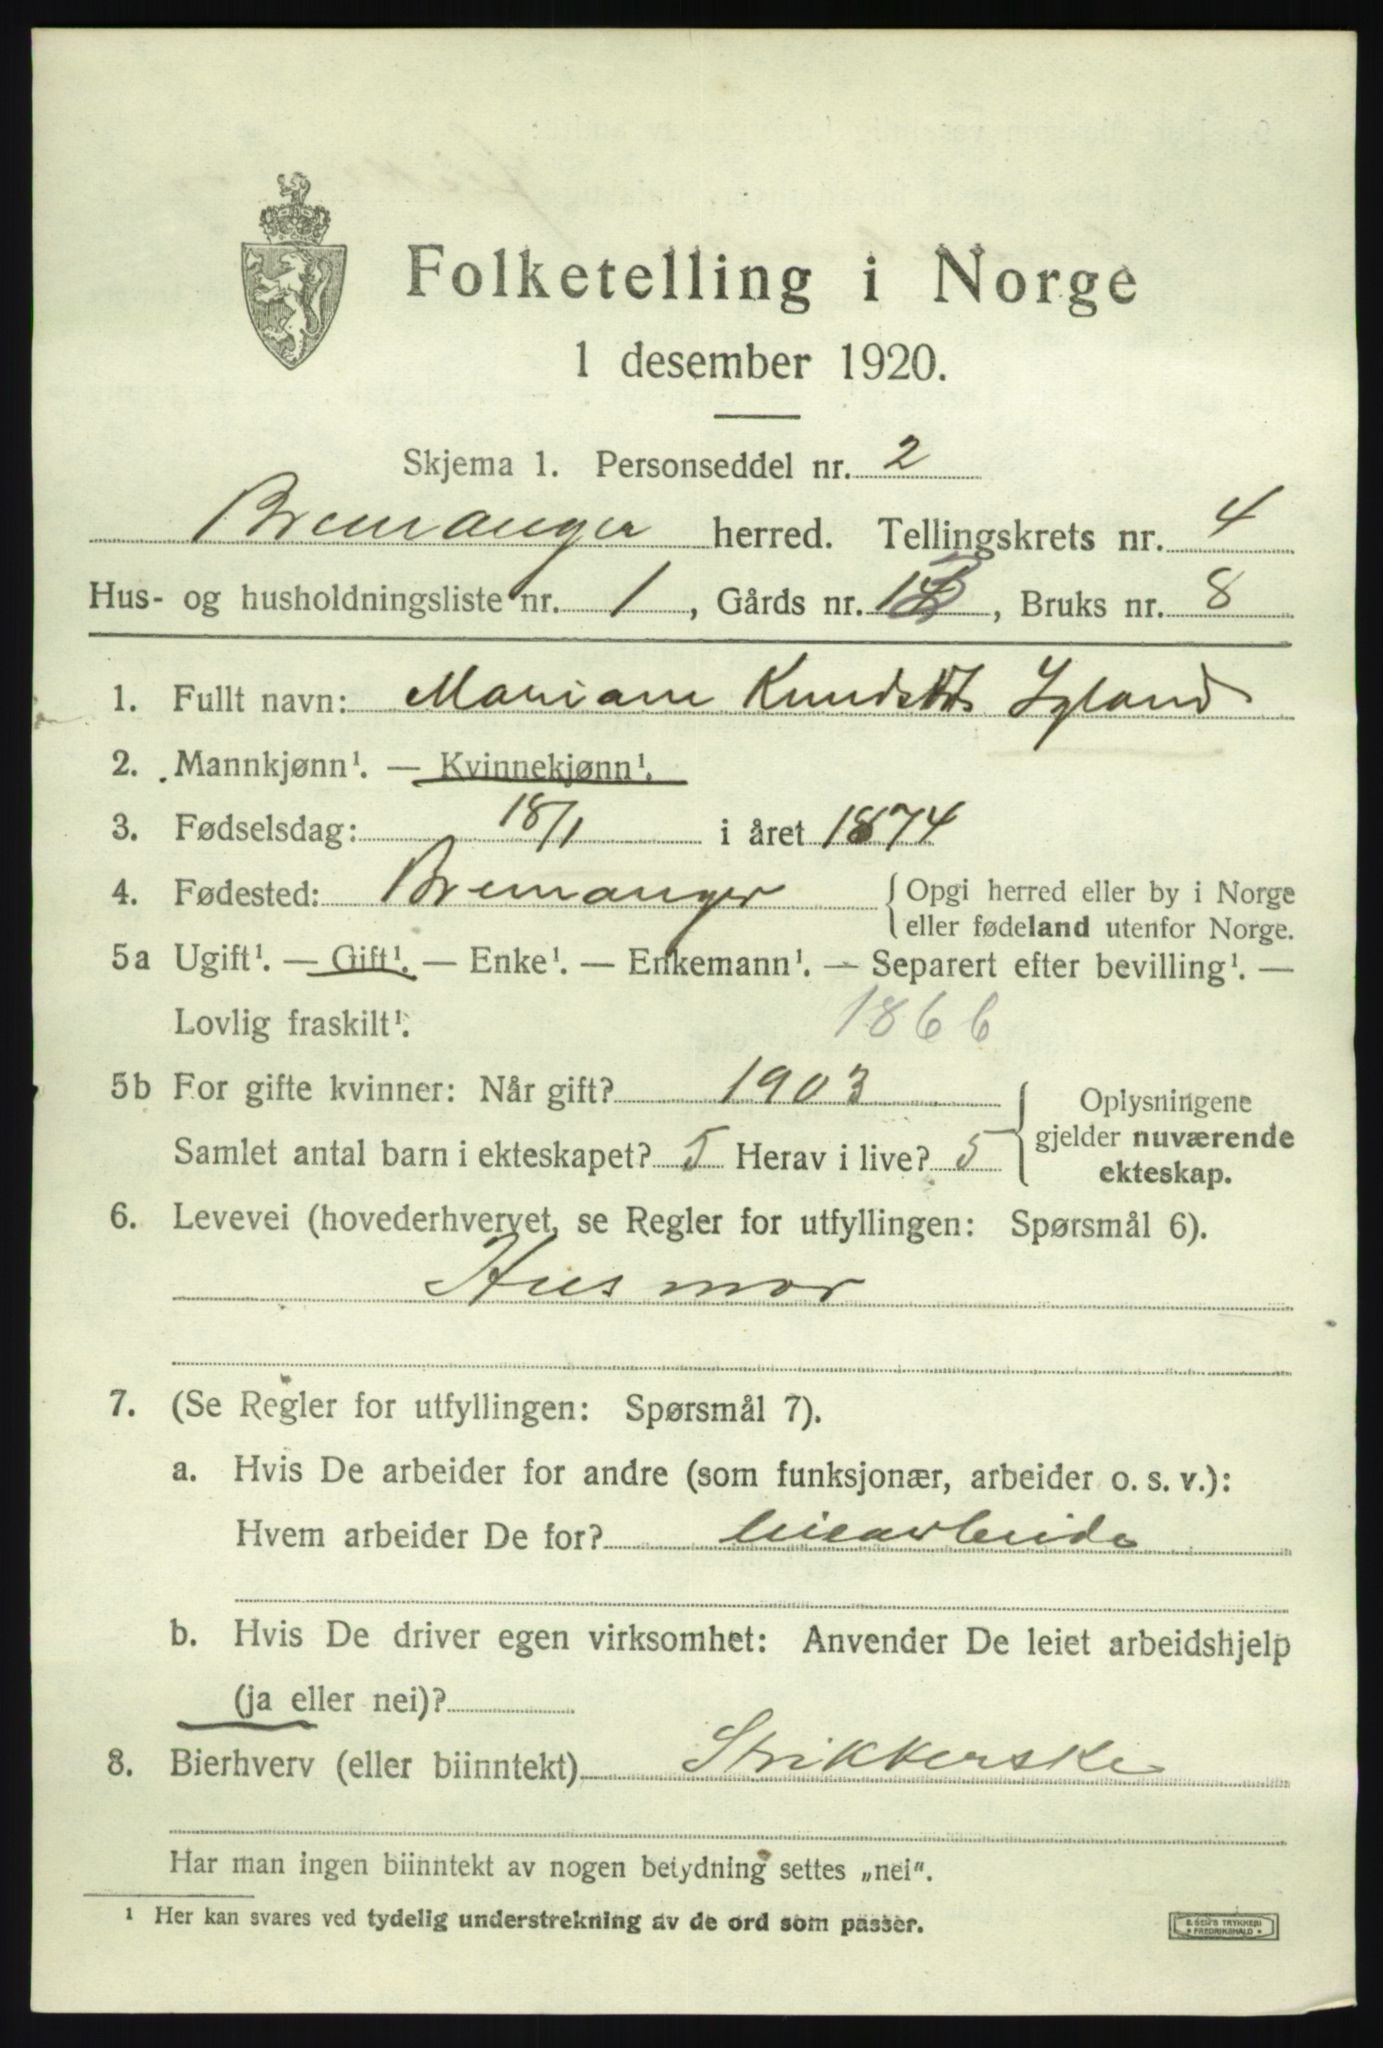 Folketelling i Norge
1 desember 1920.
Skjema 1. Personseddel nr. 2
Bremanger herred. Tellingskrets nr. 4
Hus- og husholdningsliste nr. 1, Gårds nr. , Bruks nr. 8
1. Fullt navn: Mariane Igland
2. Mannkjønn¹. — Kvinnekjønn¹.
3. Fødselsdag: 18/1 i året 1874
4. Fødested: Bremanger {Opgi herred eller by i Norge
eller fødeland utenfor Norge.
5a Ugift¹. — Gift¹. — Enke¹. — Enkemann¹. — Separert efter bevilling¹. —
Lovlig fraskilt¹. 1866
5b For gifte kvinner: Når gift? 1903
Samlet antal barn i ekteskapet? 5 Herav i live? 5
Oplysningene
gjelder nuværende
ekteskap.
6. Levevei (hovederhvervet, se Regler for utfyllingen: Spørsmål 6).
Husmor
7. (Se Regler for utfyllingen: Spørsmål 7).
a. Hvis De arbeider for andre (som funksjonær, arbeider o. s. v.):
Hvem arbeider De for?
b. Hvis De driver egen virksomhet: Anvender De leiet arbeidshjelp
(ja eller nei)?
8. Bierhverv (eller biinntekt) Strikkerske
Har man ingen biinntekt av nogen betydning settes „nei“.
¹ Her kan svares ved tydelig understrekning av de ord som passer.
E. SEM'S TRYKKERI
FREDRIKSHALD